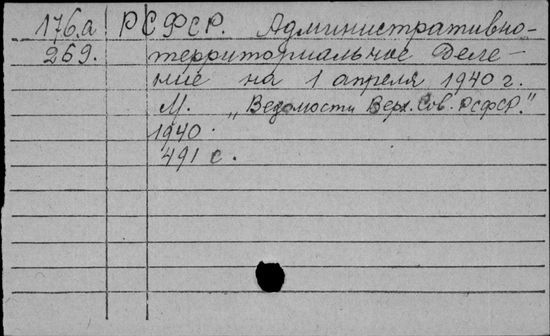 176.а РСФСР. Административно-
269. территориальное деле-
ние на 1 апреля 1940 г.
М. "Ведомости Верх. Сов. РСФСР."
1940.
491 с.